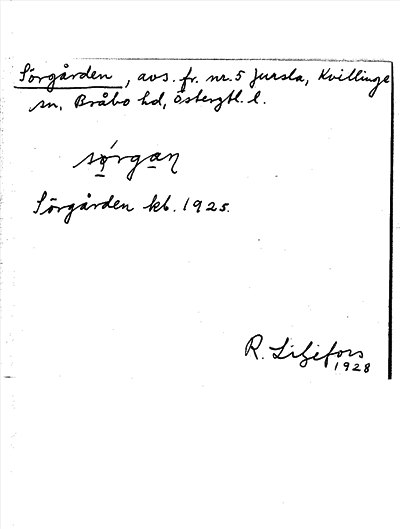 Sörgården, avs. fr. nr. 5 Jursla, Kvillinge
sn, Bråbo hd, Östergtl. l.
sǿrgan
Sörgården kb. 1925.
R. Liljefors
1928